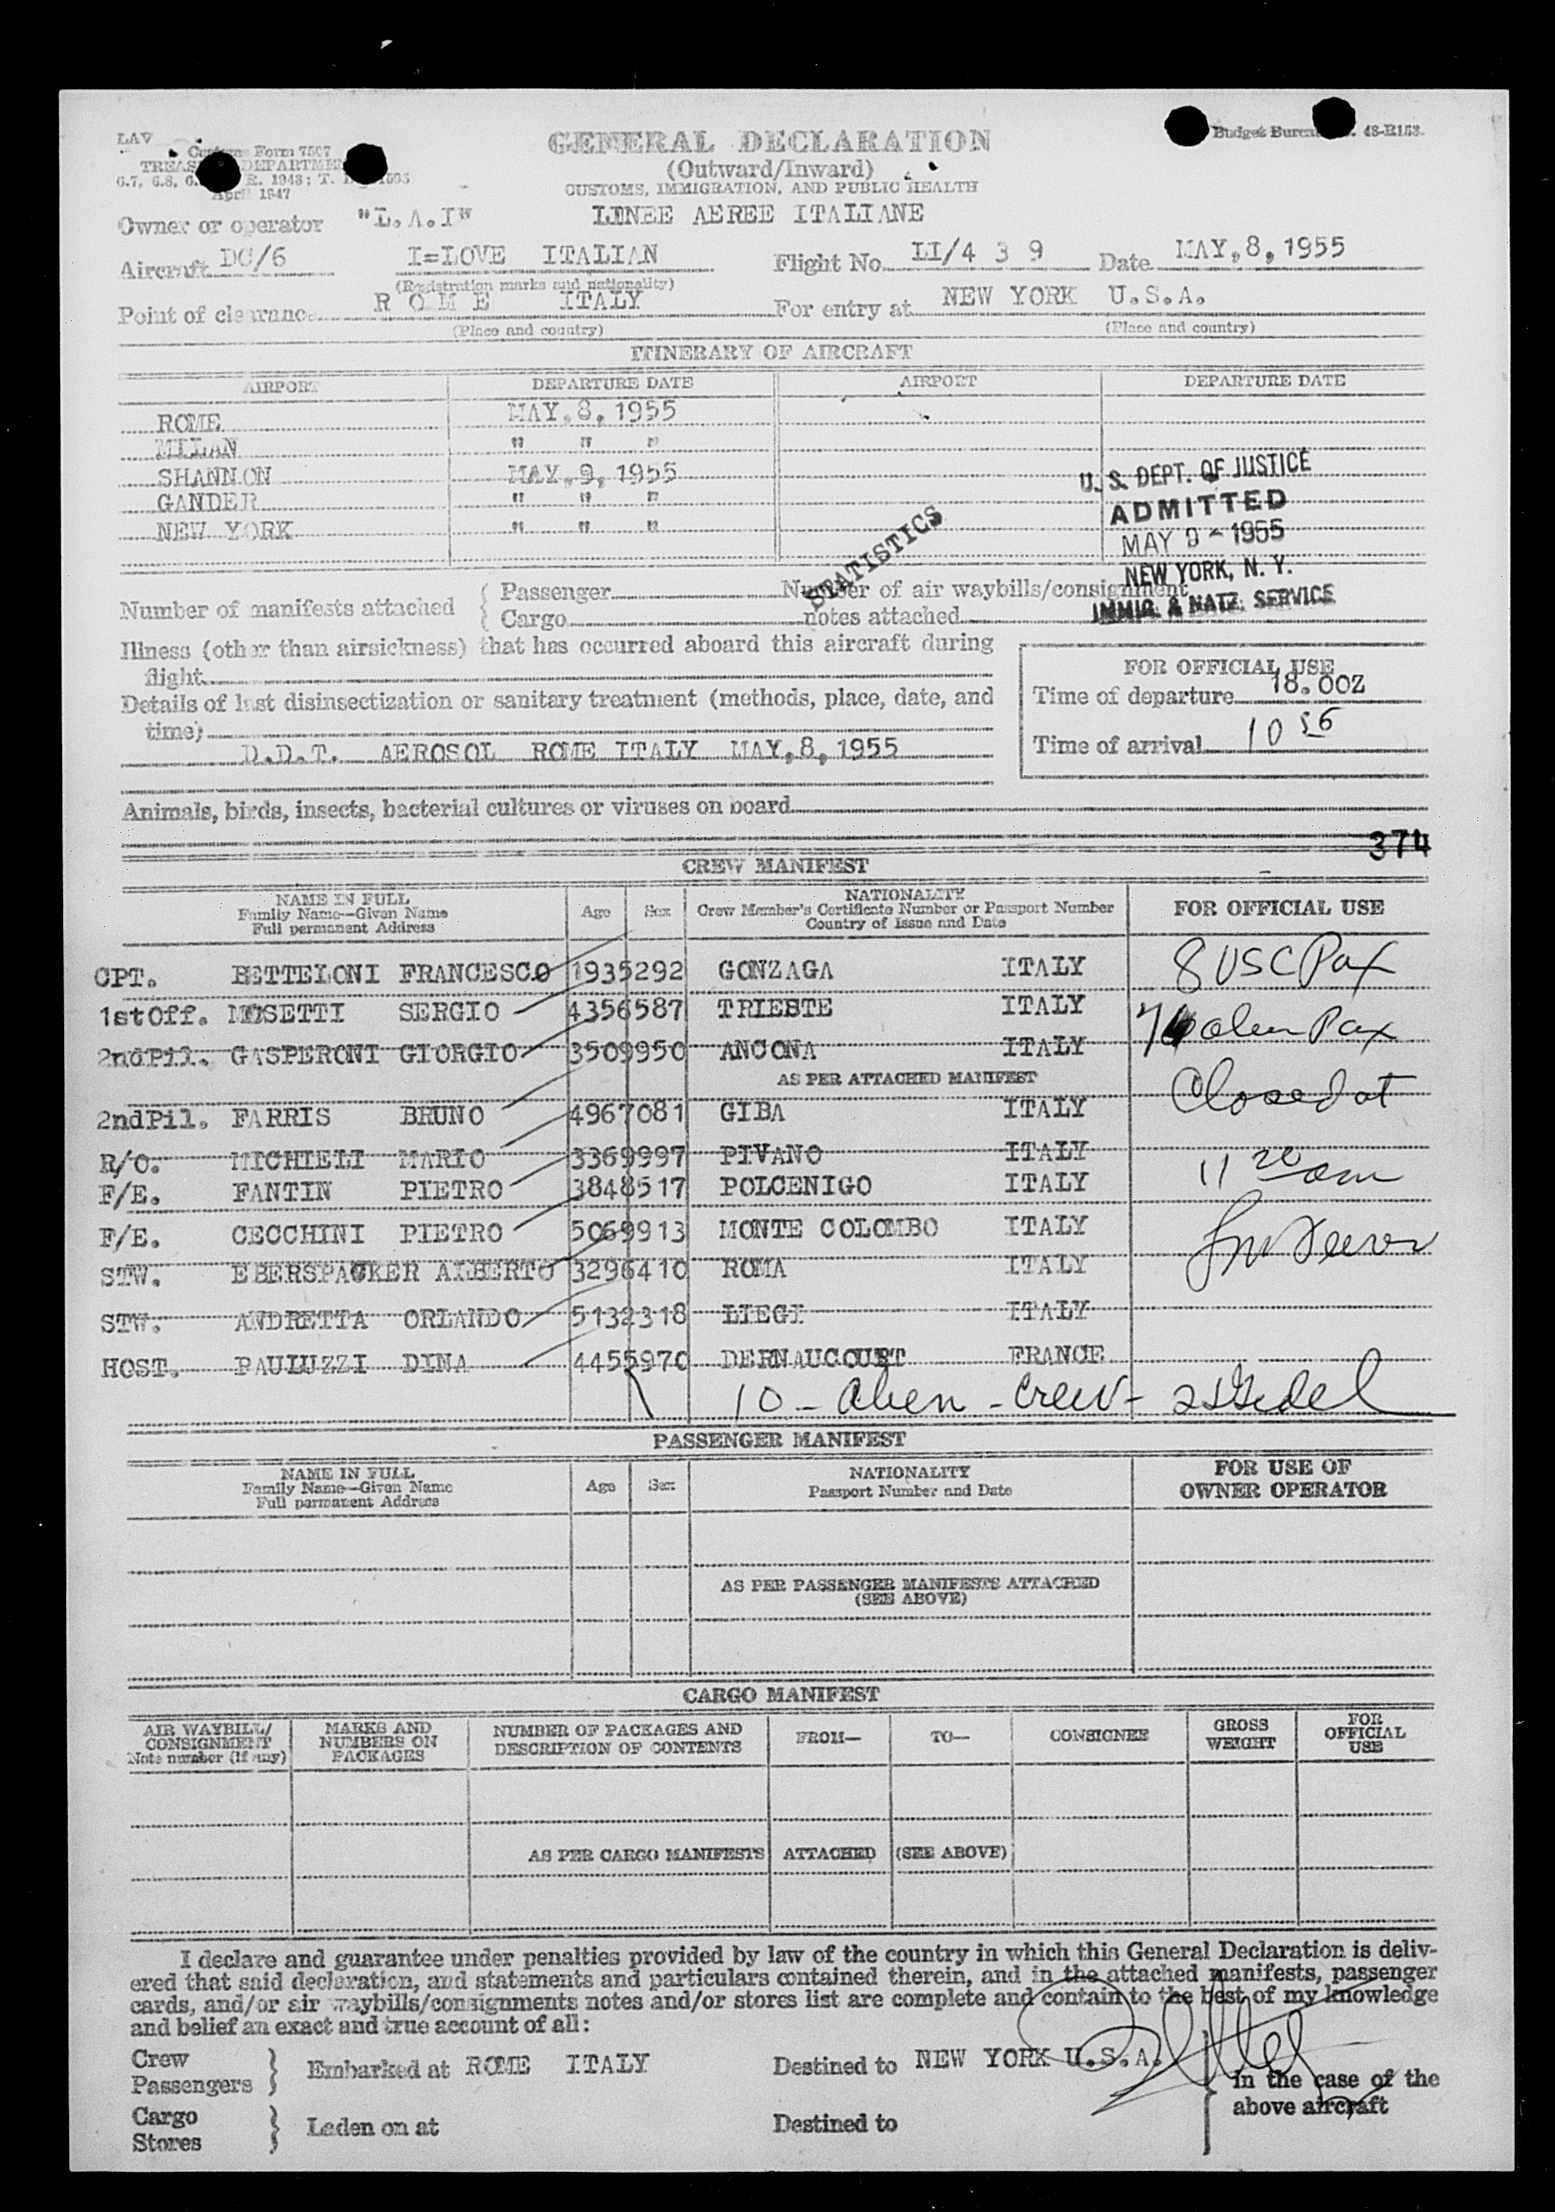 LAV
Customs Form 7507
TREASURY DEPARTMENT
April 1947
Budget Bureau No. 48-R153.
GENERAL DECLARATION
(Outward/Inward)
CUSTOMS, IMMIGRATION, AND PUBLIC HEALTH
Owner or operator "L.A.I" LINEE AEREE ITALIANE
Aircraft DC/6 I=LOVE ITALIAN Flight No. LI/4 3 9 Date MAY,8,1955
(Registration marks and nationality)
Point of clearance R O M E ITALY For entry at NEW YORK U.S.A.
(Place and country) (Place and country)
ITINERARY OF AIRCRAFT
AIRPORT DEPARTURE DATE AIRPORT DEPARTURE DATE
ROME MAY.8,1955
MILAN " " "
SHANNON MAY.9,1955
GANDER " " "
NEW YORK " " "
U. S. DEPT. OF JUSTICE
ADMITTED
MAY 9 - 1955
NEW YORK, N. Y.
IMMIG. & NATZ. SERVICE
STATISTICS
Number of manifests attached { Passenger Number of air waybills/consignment
{ Cargo notes attached
Illness (other than airsickness) that has occurred aboard this aircraft during
flight
Details of last disinsectization or sanitary treatment (methods, place, date, and
time)
D.D.T. AEROSOL ROME ITALY MAY,8,1955
FOR OFFICIAL USE
Time of departure 18.00Z
Time of arrival 10 56
Animals, birds, insects, bacterial cultures or viruses on board
374
CREW MANIFEST
NAME IN FULL
Family Name—Given Name
Full permanent Address
Age Sex
NATIONALITY
Crew Member's Certificate Number or Passport Number
Country of Issue and Date
FOR OFFICIAL USE
CPT. BETTELONI FRANCESCO 1935292 GONZAGA ITALY 8 USC Pax
1stOff. MOSETTI SERGIO 4356587 TRIESTE ITALY
2ndPil. GASPERONI GIORGIO 3509950 ANCONA ITALY alien Pax
AS PER ATTACHED MANIFEST
2ndPil. FARRIS BRUNO 4967081 GIBA ITALY Closed at
R/O. MICHIELI MARIO 3369997 PIVANO ITALY
F/E. FANTIN PIETRO 3848517 POLCENIGO ITALY 11 20 am
F/E. CECCHINI PIETRO 5069913 MONTE COLOMBO ITALY
STW. EBERSPACKER ALBERTO 3296410 ROMA ITALY
STW. ANDRETTA ORLANDO 5132318 LIEGI ITALY
HOST. PAULUZZI DINA 4455970 DERNAUCOURT FRANCE
10 - alien - crew -
PASSENGER MANIFEST
NAME IN FULL
Family Name—Given Name
Full permanent Address
Age Sex
NATIONALITY
Passport Number and Date
FOR USE OF
OWNER OPERATOR
AS PER PASSENGER MANIFESTS ATTACHED
(SEE ABOVE)
CARGO MANIFEST
AIR WAYBILL/
CONSIGNMENT
Note number (if any)
MARKS AND
NUMBERS ON
PACKAGES
NUMBER OF PACKAGES AND
DESCRIPTION OF CONTENTS
FROM—
TO—
CONSIGNEE
GROSS
WEIGHT
FOR
OFFICIAL
USE
AS PER CARGO MANIFESTS ATTACHED (SEE ABOVE)
I declare and guarantee under penalties provided by law of the country in which this General Declaration is deliv-
ered that said declaration, and statements and particulars contained therein, and in the attached manifests, passenger
cards, and/or air waybills/consignments notes and/or stores list are complete and contain to the best of my knowledge
and belief an exact and true account of all:
Crew
Passengers } Embarked at ROME ITALY Destined to NEW YORK U.S.A.
Cargo
Stores } Laden on at Destined to
in the case of the
above aircraft